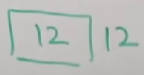 12 12